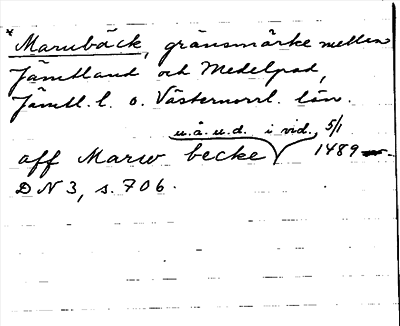 * Marubäck, gränsmärke mellan
Jämtland och Medelpad,
Jämtl. l. o. Västernorrl. län.
u.å. u.d. i vid. 5/1
aff Marw becke 1489
DN 3, s. 706.